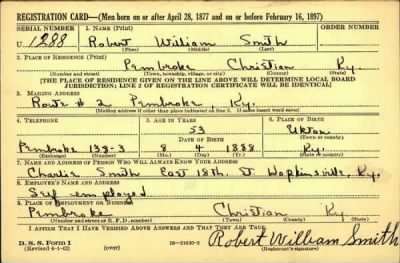 REGISTRATION CARD—(Men born on or after April 28, 1877 and on or before February 16, 1897)
SERIAL NUMBER 1. NAME (Print)
U 1288 Robert William Smith
(First) (Middle) (Last)
2. PLACE OF RESIDENCE (Print)
Pembroke Christian Ky.
(Number and street) (Town, township, village, or city) (County) (State)
[THE PLACE OF RESIDENCE GIVEN ON THE LINE ABOVE WILL DETERMINE LOCAL BOARD
JURISDICTION; LINE 2 OF REGISTRATION CERTIFICATE WILL BE IDENTICAL]
3. MAILING ADDRESS
Route # 2 Pembroke, Ky.
[Mailing address if other than place indicated on line 2. If same insert word same]
4. TELEPHONE 5. AGE IN YEARS 6. PLACE OF BIRTH
53
DATE OF BIRTH (Town or county)
Pembroke 138-3 8 4 1888 Ky.
(Exchange) (Number) (Mo.) (Day) (Yr.) (State or country)
7. NAME AND ADDRESS OF PERSON WHO WILL ALWAYS KNOW YOUR ADDRESS
Charlie Smith East 18th. St Hopkinsville, Ky.
8. EMPLOYER'S NAME AND ADDRESS
Self employed
9. PLACE OF EMPLOYMENT OR BUSINESS
Pembroke Christian Ky.
(Number and street or R. F. D. number) (Town) (County) (State)
I AFFIRM THAT I HAVE VERIFIED ABOVE ANSWERS AND THAT THEY ARE TRUE.
D. S. S. Form 1
(Revised 4-1-42) (over) 16—21630-2 Robert William Smith
(Registrant's signature)